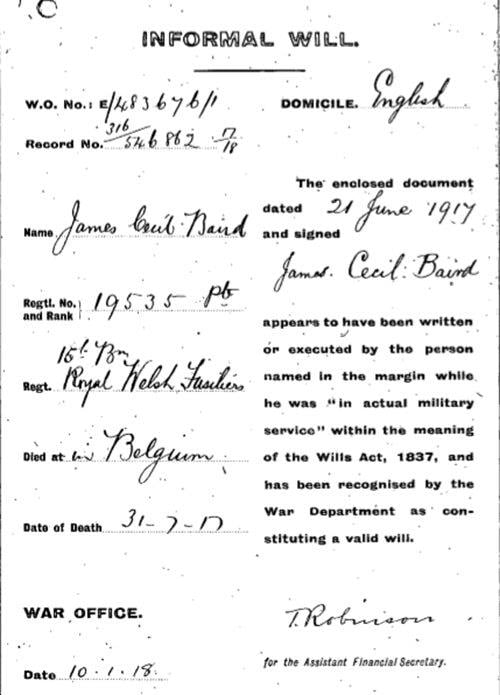 INFORMAL WILL.
W.O. No.: E/483676/1
Record No. 316/546862 17/18
Name James Cecil Baird
Regtl. No. and Rank 19535 Pte
15th Bn
Regt. Royal Welsh Fusiliers
Died at in Belgium
Date of Death 31-7-17
WAR OFFICE.
Date 10.1.18.
DOMICILE. English
The enclosed document
dated 21 June 1917
and signed
James. Cecil. Baird
appears to have been written
or executed by the person
named in the margin while
he was "in actual military
service" within the meaning
of the Wills Act, 1837, and
has been recognised by the
War Department as con-
stituting a valid will.
T. Robinson
for the Assistant Financial Secretary.